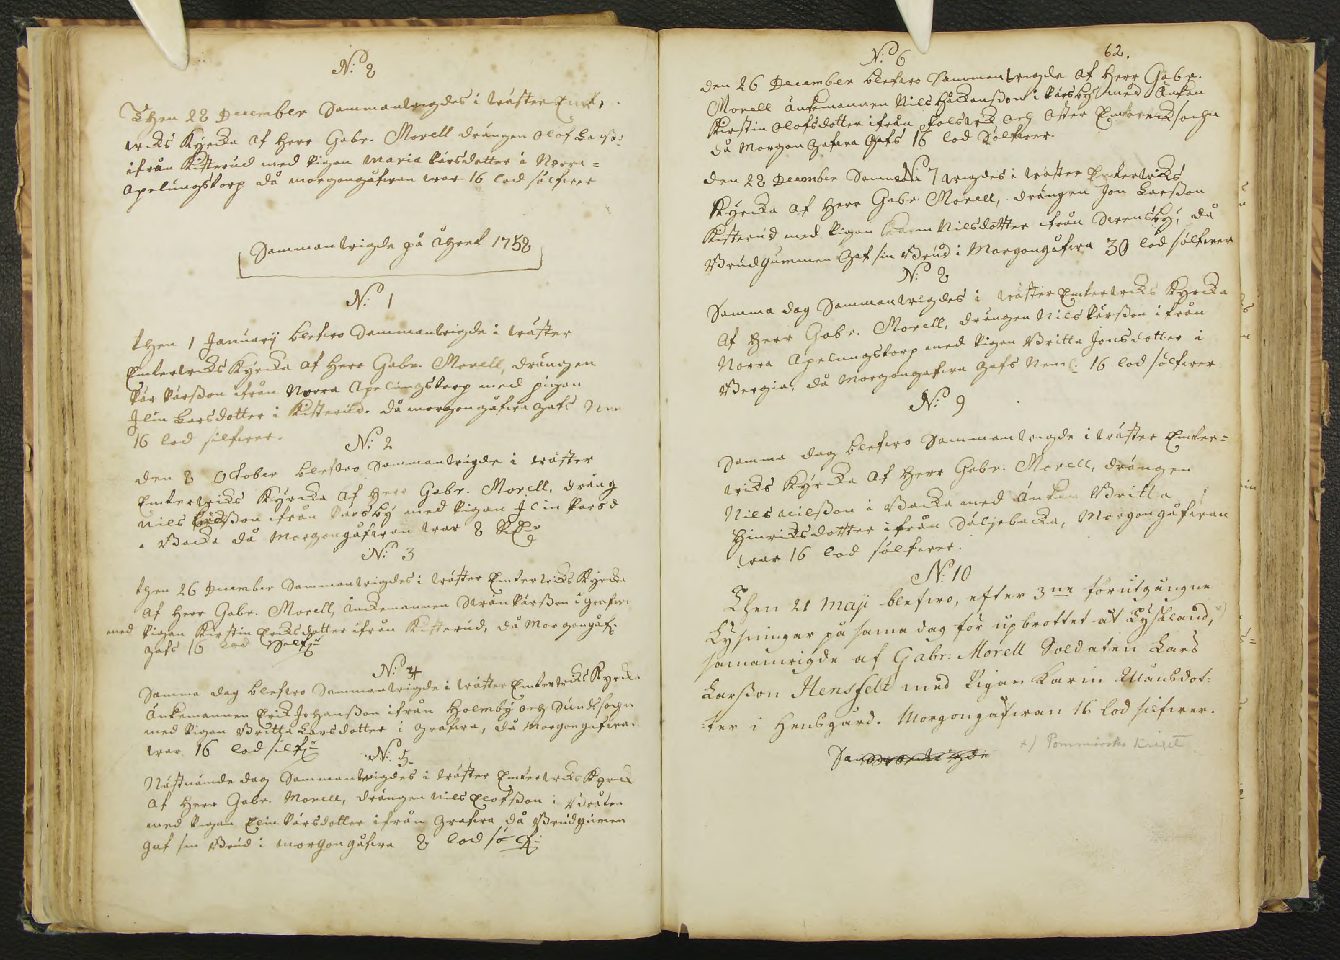 N: 8
Then 28 December Sammanwigdes i wäster Emt,
wiks Kyrcka af Herr Gabr. Morell drängen Olof Larß:
ifrån Kisterud med Pigan Maria Pärsdotter i Norra =
Apelungstorp då morgongåfwan war 16 lod sölfwer
Sammanwigda på Åhret 1758
N: 1
then 1 January blefwo Sammanwigde i wäster
Emterwiks Kyrcka af Herr Gabr. Morell, drängen
Pär Pärßon ifrån Norra Apelungstorp med pigan
Elin Larsdotter i Kisterud. då morgongåfwa gafs
16 lod silfwer.
N: 2
den 8 October blefwo Sammanwigde i wäster
Emterwiks Kyrcka af Herr Gabr. Morell, dräng
Nils ifrån med Pigan Elin Pärsd
Backa då Morgongåfwan war 8
N: 3
then 26 December Sammanwigdes i wäster Emterwiks Kyrcka
af Herr Gabr. Morell, Änckemannen Swän Pärßon i
med Pigan Kirstin Ericksdotter ifrån Kisterud, då Morgongåf:
gafs 16 lod
N: 4
Samma dag blefwo Sammanwigde i wäster Emterwiks Kyrck.
Änckemannen Erick Johanßon ifrån Holmby och Sundssochn
med Pigan Britta Larsdotter i då Morgongåfwan
war 16 lod silf:
N: 5
Nästnämde dag Sammanwigdes i wäster Emterwiks Kyrck
af Herr Gabr. Morell, drängen Nils Elofßon i
med Pigan Elin Pärsdotter ifrån då Brudgumen
gaf sin Brud i morgongåfwa 8 lod
62.
N: 6
den 26 December blefwo Sammanwigde af Herr Gabr.
Morell Änckemannen Nils Håkanßon i med Änkan
Kirstin Olofsdotter ifrån och Öster Emterwiksochn
då Morgongåfwa gafs 16 lod Sölfwer.
N: 7
den 28 December Sammanwigdes i wäster Emterwiks
Kyrcka af Herr Gabr. Morell, drängen Jon Larßon
Kisterud med Pigan Karin Nilsdotter ifrån Swensby, då
Brudgummen gaf sin Brud i Morgongåfwa 30 lod sölfwer
N: 8
Samma dag Sammanwigdes i wäster Emterwiks Kyrcka
af Herr Gabr. Morell, drängen Nils Pärßon ifrån
Norra Apelungstorp med Pigan Britta Jonsdotter i
Bergia, då Morgongåfwa gafs 16 lod sölfwer
N: 9
Samma dag blefwo Sammanwigde i wäster Emter=
wiks Kyrcka af Herr Gabr. Morell, drängen
Nils Nilßon i Backa med Änkan Britta
Hinricksdotter ifrån Säljebacka, Morgongåfwan
war 16 lod sölfwer.
N: 10
Then 21 Maji blefwo, efter 3ne förutgångne
Lysningar på sama dag för upbrottet åt Tyskland, +)
samanwigde af Gabr. Morell Soldaten Lars
Larßon Hensfelt med Pigan Karin Månsdot:
ter i Hensgård. Morgongåfwan 16 lod silfwer.
+) Pommerska kriget